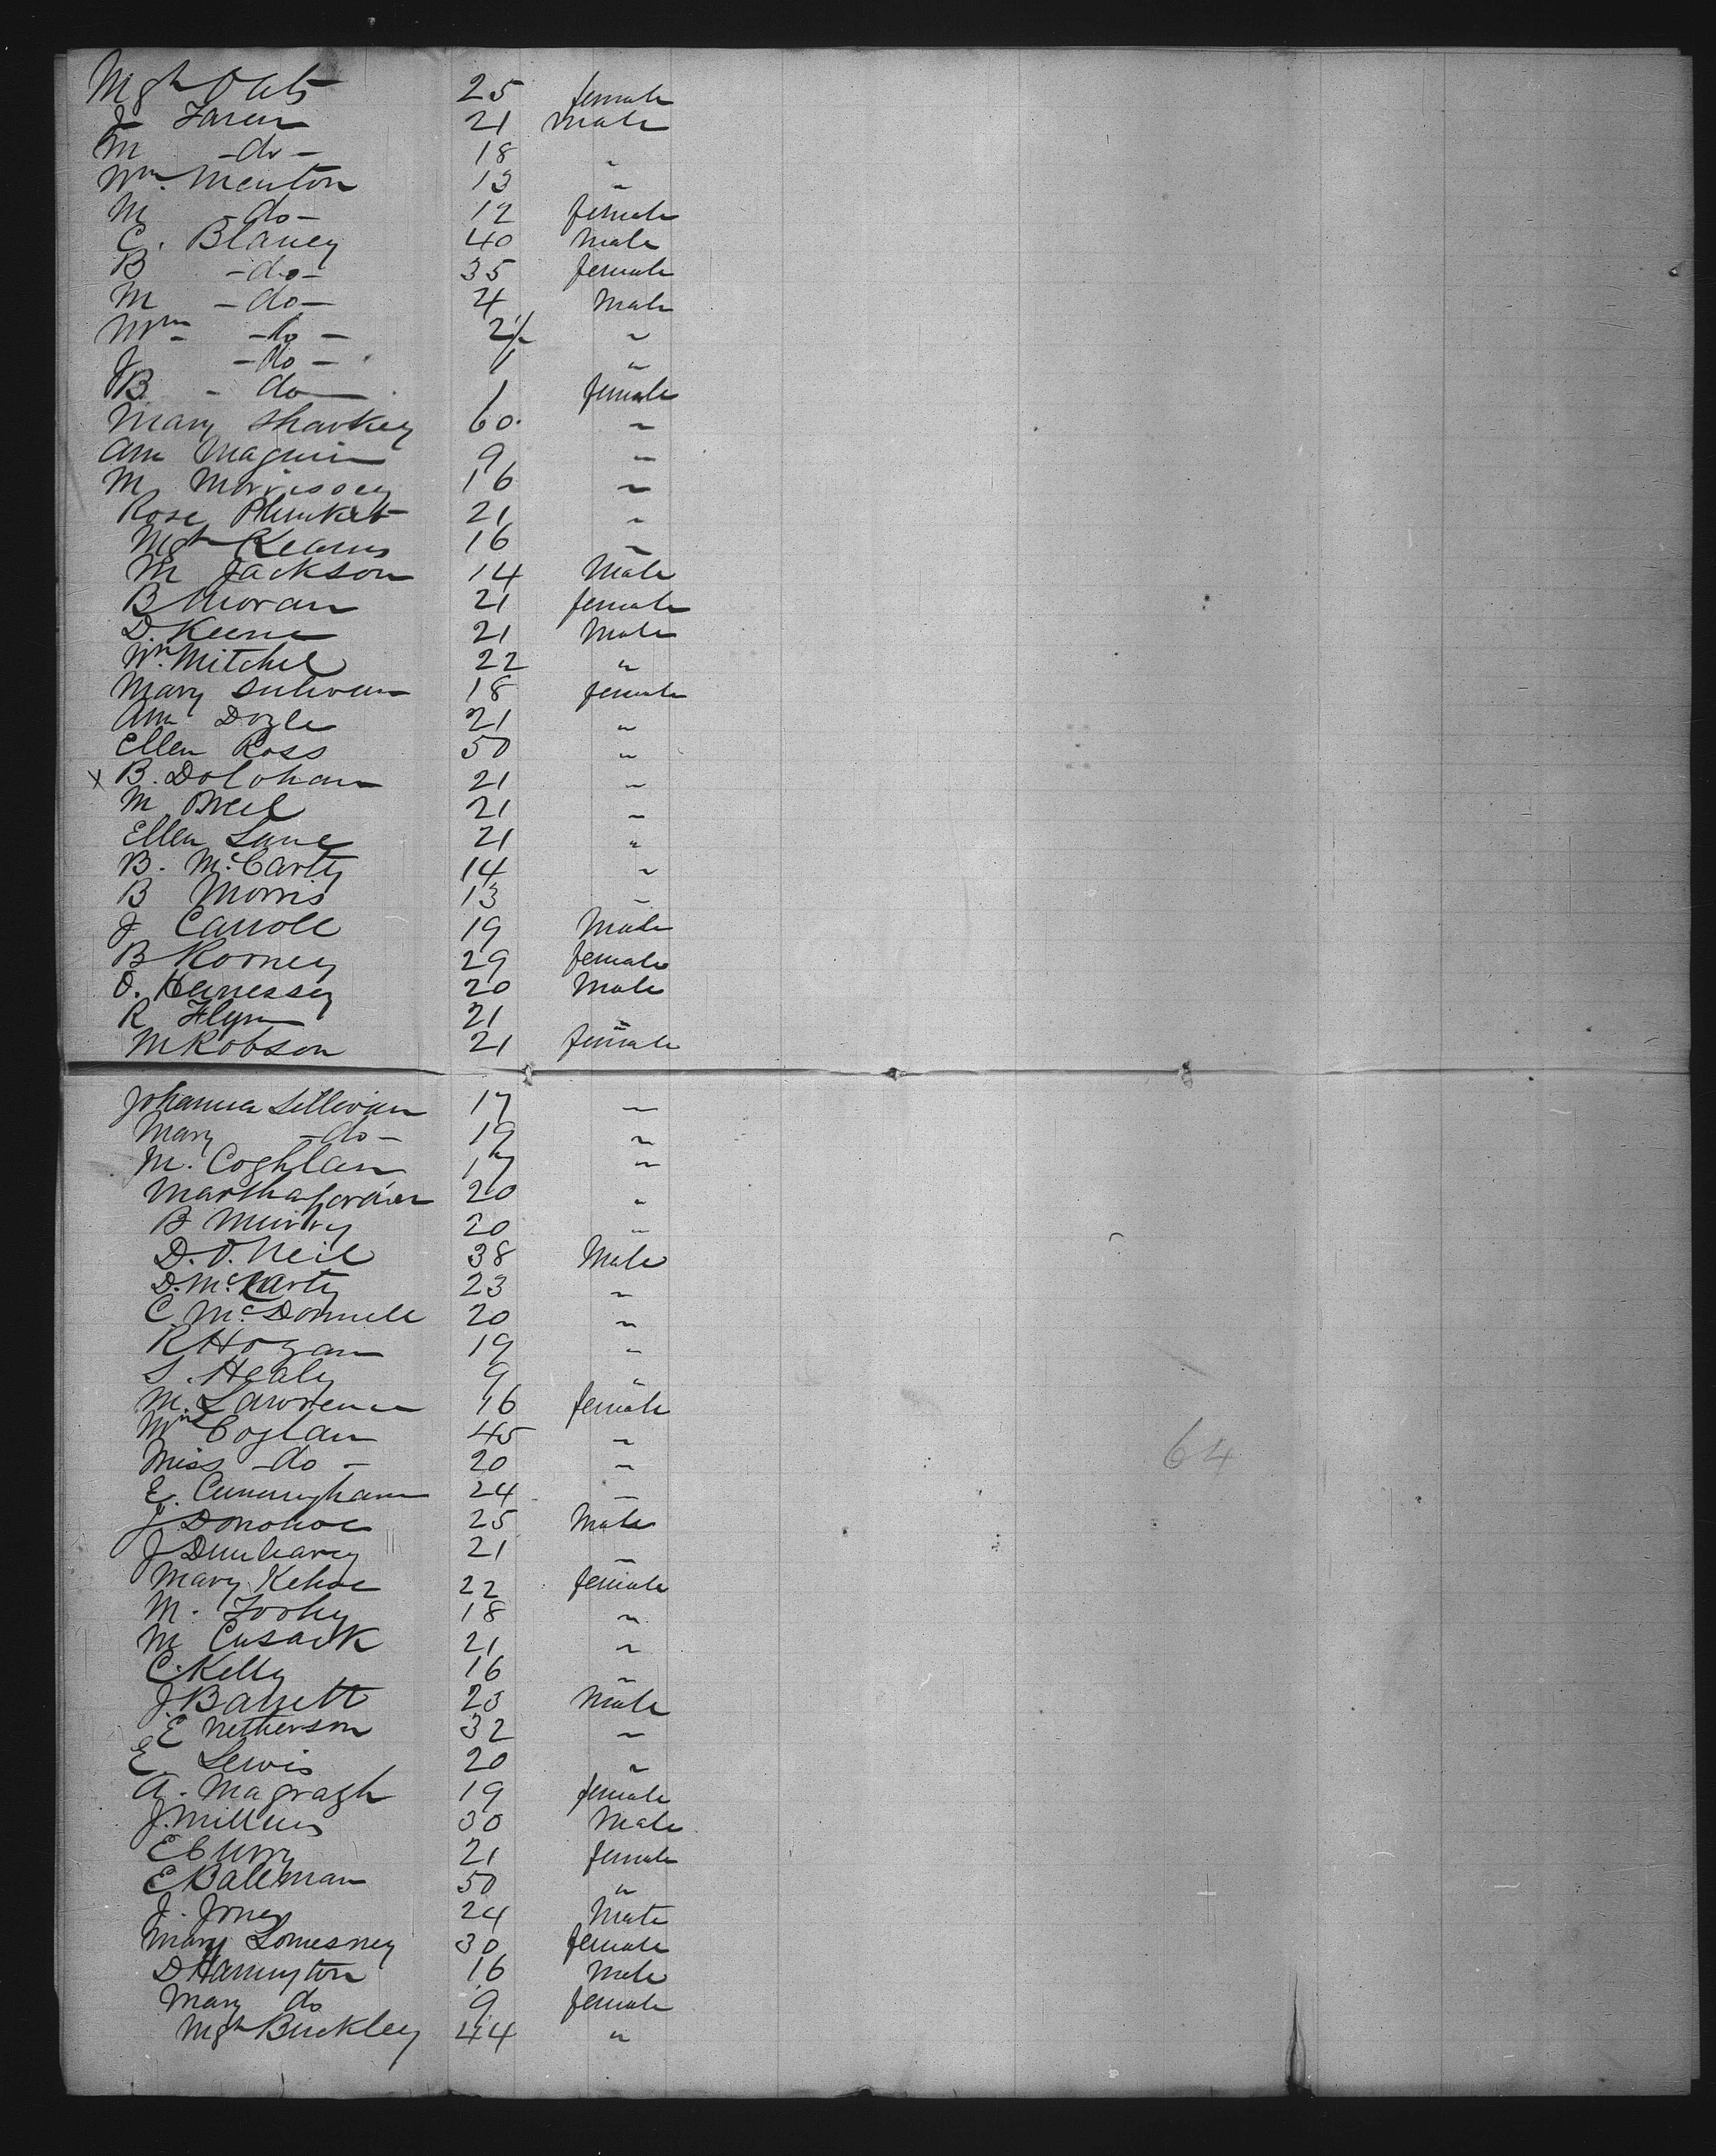 Mgt Oats 25 female
J Faren 21 Male
M -do- 18 "
Wm. Menton 13 "
M do- 12 female
C. Blaney 40 Male
B -do- 35 female
M -do- 4 Male
Wm -do- 2½ "
J -do- 1 "
B - do 1 female
Mary Sharkey 60 "
Ann Maguire 9 "
M Morrissey 16 "
Rose Plunket 21 "
Mgt Kearns 16 "
M Jackson 14 Male
B Moran 21 female
D. Keene 21 Male
Wm. Mitchel 22 "
Mary Sulivan 18 female
Ann Doyle 21 "
Ellen Ross 50 "
x B. Dolohan 21 "
M 21 "
Ellen Lane 21 "
B. McCarty 14 "
B Morris 13 "
J Carroll 19 Male
B Rooney 29 female
O. Henessey 20 Male
R Flyn 21 "
M Robson 21 female
Johanna Sullivan 17 "
Mary -do- 19 "
M. Coghlan 17 "
Martha 20 "
B Murry 20 "
D. O. Neil 38 Male
D. McCarty 23 "
C. McDonnell 20 "
R Hogan 19 "
S. Healy 9 "
M. Lawrence 16 female
Mrs Coglan 45 "
Miss -do- 20 "
E. Cunningham 24 "
J Donohoe 25 Male
J Dunleavy 21 "
Mary Kehoe 22 female
M. Toohy 18 "
M Cusack 21 "
C. Kelly 16 "
J. Barrett 23 Male
E Netherson 32 "
E Lewis 20 "
A. Magragh 19 female
J. Millens 30 Male
E Curry 21 female
E Bateman 50 "
J. Jones 24 Male
Mary Lomesney 30 female
D Harrington 16 Male
Mary do 9 female
Mgt Buckley 44 "
64